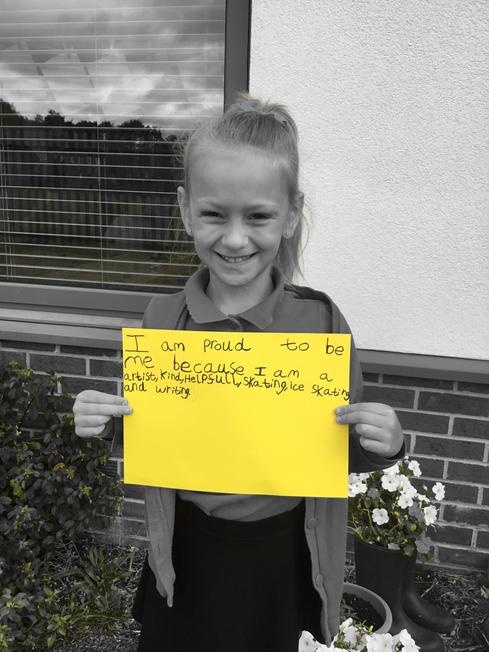 I am proud to be
me because I am a
artist, Kind, HelPfull, skating, Ice skating
and writing